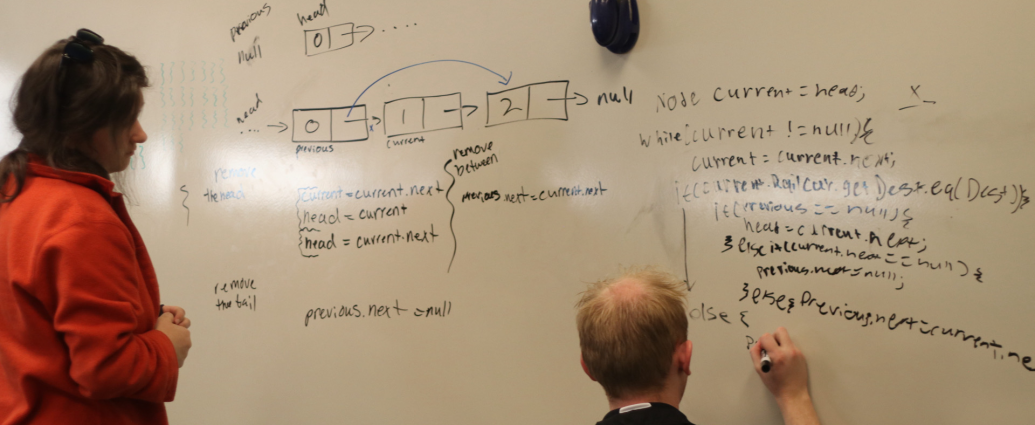 previous
null
head
0
....
head
.... 0 1 2 null
previous current
remove
the head
current = current.next
head = current
head = current.next
remove
between
previous.next = current.next
remove
the tail
previous.next = null
Node current = head;
x
while(current != null){
current = current.next;
if(current.
if(previous == null){
head = current.next;
}else if(current.next == null){
previous.next = null;
}else{ previous.next = current.ne
else {